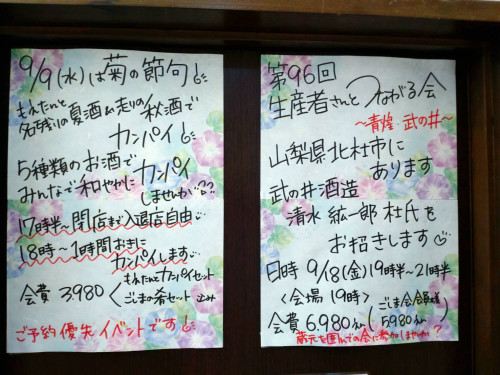 9/9(水)は菊の節句
もえたいと
名残りの夏酒&走りの秋酒で
カンパイ
5種類のお酒で
みんなで和やかに カンパイ
しませんか??
17時半〜閉店まで入退店自由
18時〜1時間おきに
カンパイします
会費 3.980
カンパイセット
ごまの希セット 込み
ご予約優先イベントです
第96回
生産者さんとつながる会
〜青煌 武の井〜
山梨県北杜市に
あります
武の井酒造
清水紘一郎 杜氏を
お招きします
日時 9/18(金)19時半〜21時半
〈会場 19時〉
会費 6.980
ごま会会員様
5980
蔵元を囲んでの会に参加しませんか?